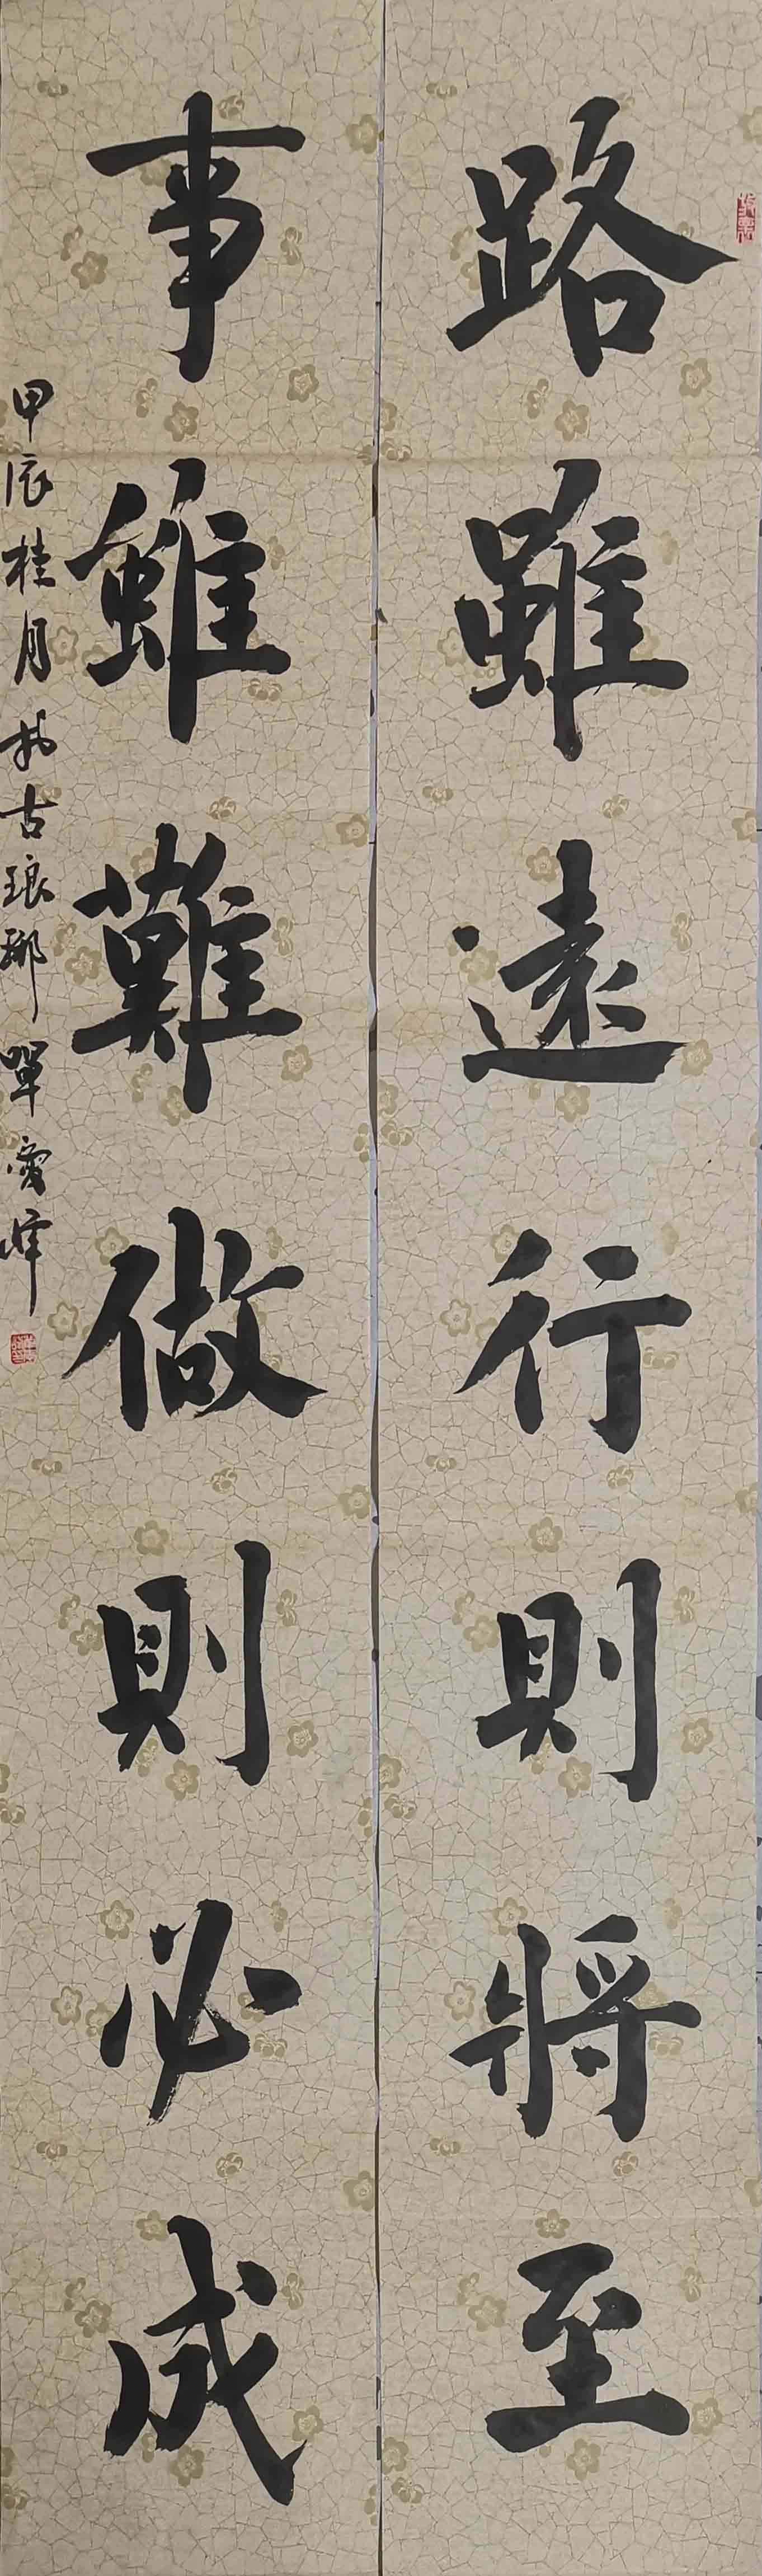 路雖遠行則將至
事雖難做則必成
甲辰桂月於古琅琊單愛峰